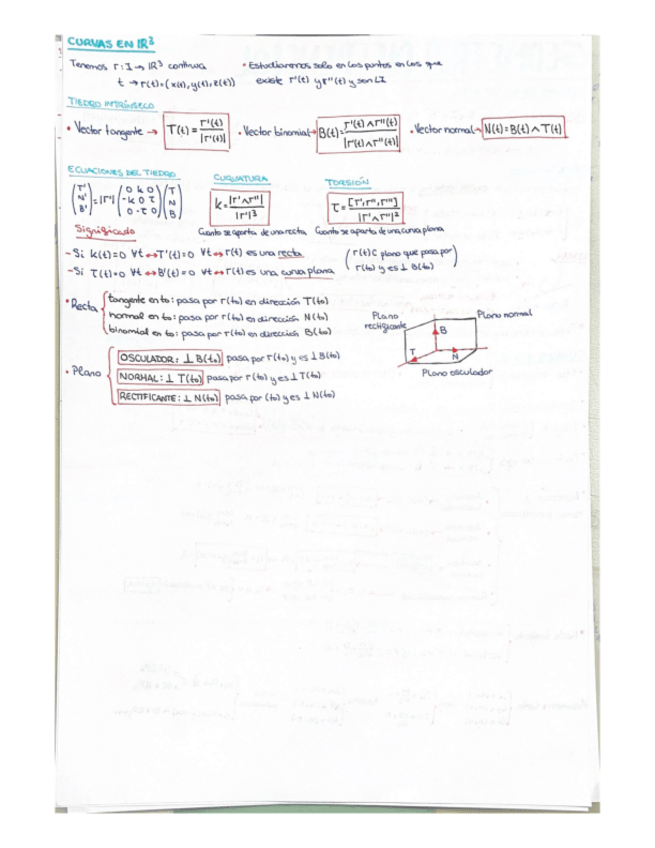 CURVAS EN IR³
Tenemos r: I → IR³ continua
t → r(t) = (x(t), y(t), z(t))
• Estudiaremos solo en los puntos en los que
existe r'(t) y r''(t) y son LI
TIEDRO INTRÍNSECO
• Vector tangente → T(t) = r'(t) / |r'(t)|
• Vector binomial → B(t) = r'(t) ∧ r''(t) / |r'(t) ∧ r''(t)|
• Vector normal → N(t) = B(t) ∧ T(t)
ECUACIONES DEL TIEDRO
(T' N' B') = |r'| (0 k 0 / -k 0 τ / 0 -τ 0) (T N B)
CURVATURA
k = |r' ∧ r''| / |r'|³
Cuanto se aparta de una recta
TORSIÓN
τ = [r', r'', r'''] / |r' ∧ r''|²
Cuanto se aparta de una curva plana
Significado
- Si k(t) = 0 ∀t ↔ T'(t) = 0 ∀t ↔ r(t) es una recta
- Si τ(t) = 0 ∀t ↔ B'(t) = 0 ∀t ↔ r(t) es una curva plana
(r(t) ⊂ plano que pasa por
r(to) y es ⊥ B(to))
• Recta
tangente en to: pasa por r(to) en dirección T(to)
normal en to: pasa por r(to) en dirección N(to)
binomial en to: pasa por r(to) en dirección B(to)
• Plano
OSCULADOR: ⊥ B(to) pasa por r(to) y es ⊥ B(to)
NORMAL: ⊥ T(to) pasa por r(to) y es ⊥ T(to)
RECTIFICANTE: ⊥ N(to) pasa por (to) y es ⊥ N(to)
Plano
rectificante
Plano normal
B
T
N
Plano osculador